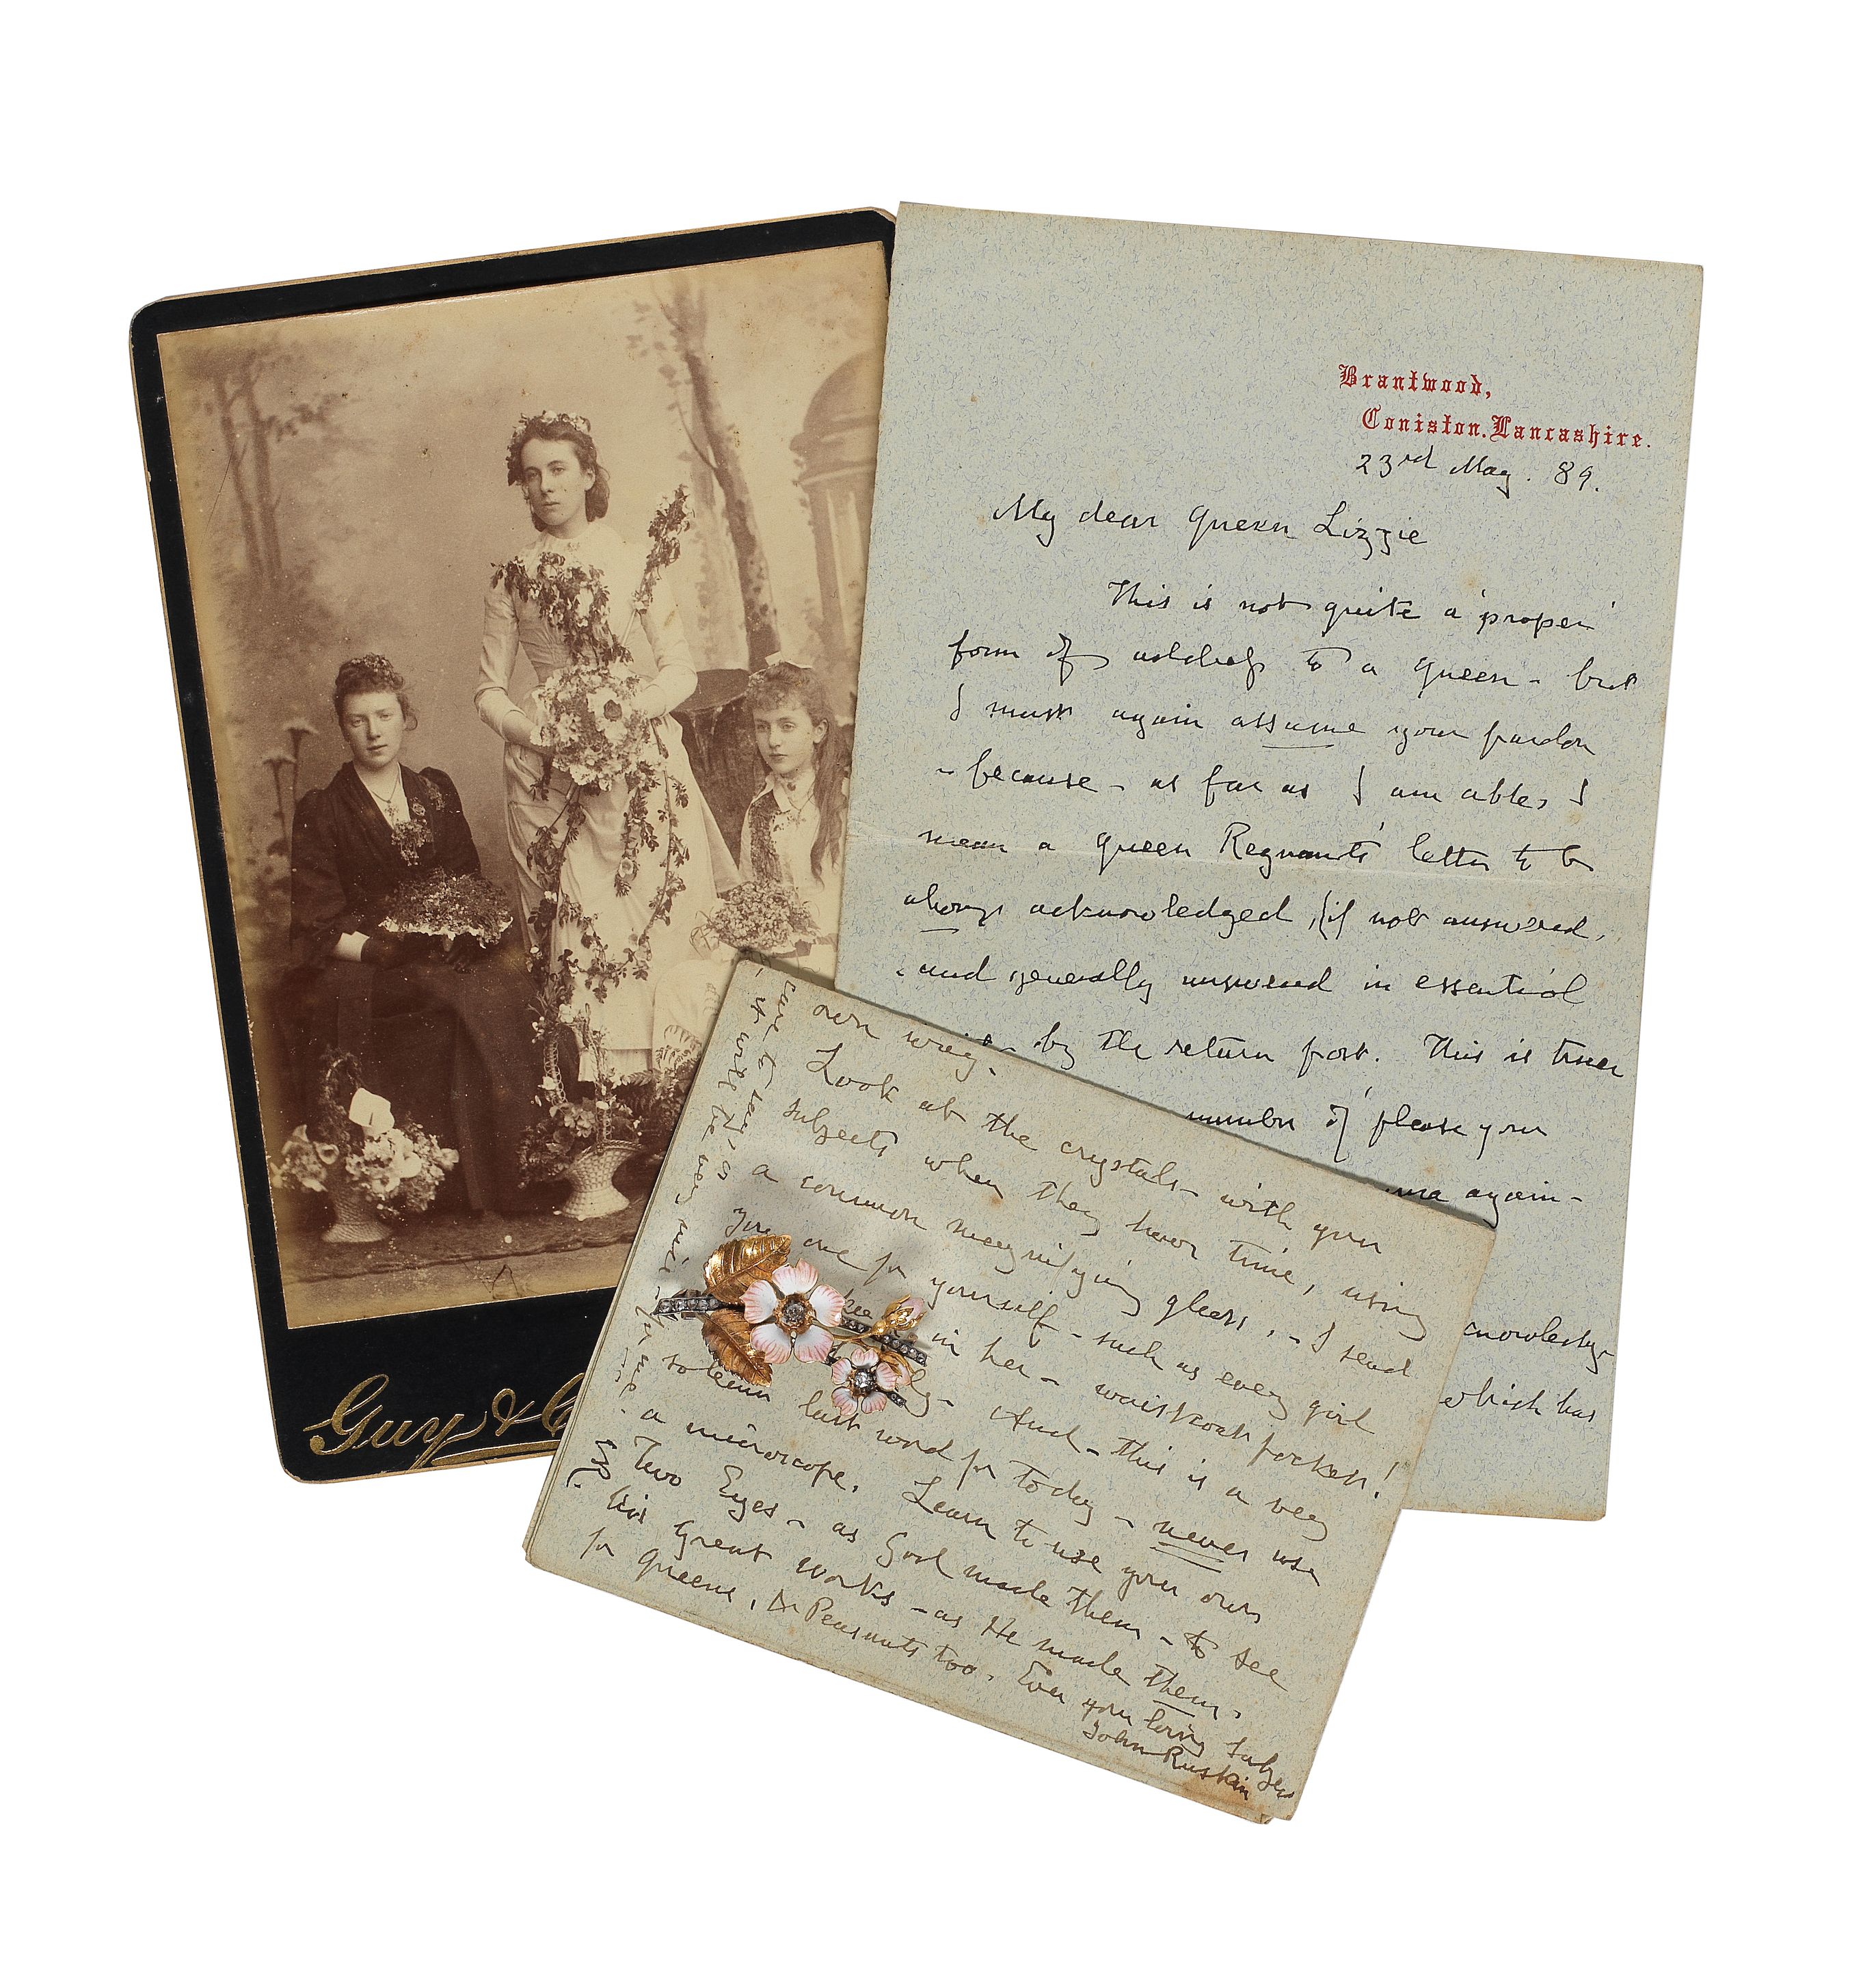 Brantwood,
Coniston. Lancashire.
23rd May. 89.
My dear Queen Lizzie
This is not quite a 'proper'
form of address to a Queen - but
I must again assume your pardon
- because - as far as I am able, I
mean a Queen Regnant's letter to be
always acknowledged, (if not answered,
- and generally answered in essential
by the return post. This is truer
number of 'please your
again -
which has
own way.
Look at the crystals - with your
subjects when they have time, using
a common magnifying glass, - I send
you one for yourself - such as every girl
in her - waistcoat pocket!
And - this is a very
solemn last word for today - never use
a microscope. Learn to use your own
Two Eyes - as God made them - to see
his Great works - as He made them,
for Queens, & Peasants too. Ever your loving Subject
John Ruskin
it will be very nice - for me.
Guy &